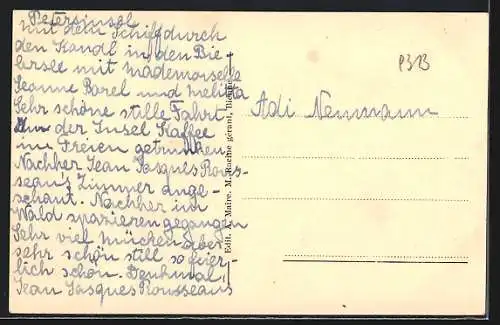 Petersinsel
mit dem Schiff durch
den Kandl in den Bie-
lersee mit Mademoiselle
Jeanne Borel und Melitta
Sehr schöne stille Fahrt
der Insel Kaffee
im Freien getrunken
Nachher Jean Jasques Rous-
seau's Zimmer ange-
schaut. Nachher im
Wald spazieren gegangen
Sehr viel mücken aber
sehr schön still so feier-
lich schön. Denkmal,
Jean Jasques Rousseaus
Edit. A. Maire. M. Racine gérant, Bienne
P313
Adi Neumann